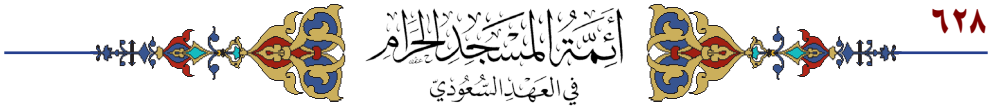 ٦٢٨
أَئِمَّةُ المَسْجِدِ الحَرَامِ
فِي العَهْدِ السُّعُودِيِّ